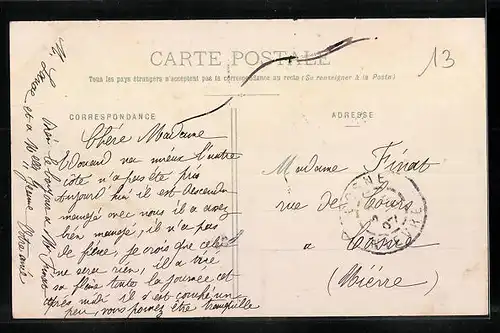 CARTE POSTALE
Tous les pays étrangers n'acceptent pas la correspondance au recto (Se renseigner à la Poste)
13
CORRESPONDANCE
ADRESSE
Chère Madame
Edouard va mieux l'autre
côte n'a pas été pris
aujourd'hui il est descendu
manger avec nous il a assez
bien mangé, il n'a pas
de fièvre, je crois que cela
ne sera rien, il a
sa flème toute la journée cet
après midi il s'est coupé un
peu, vous pouvez être tranquille
Bien le bonjour a Mr Finot
et a Melle Jeanne Votre amie
Madame Finot
rue de Cours
a Cosne
(Nièvre)
COSNE
NIEVRE